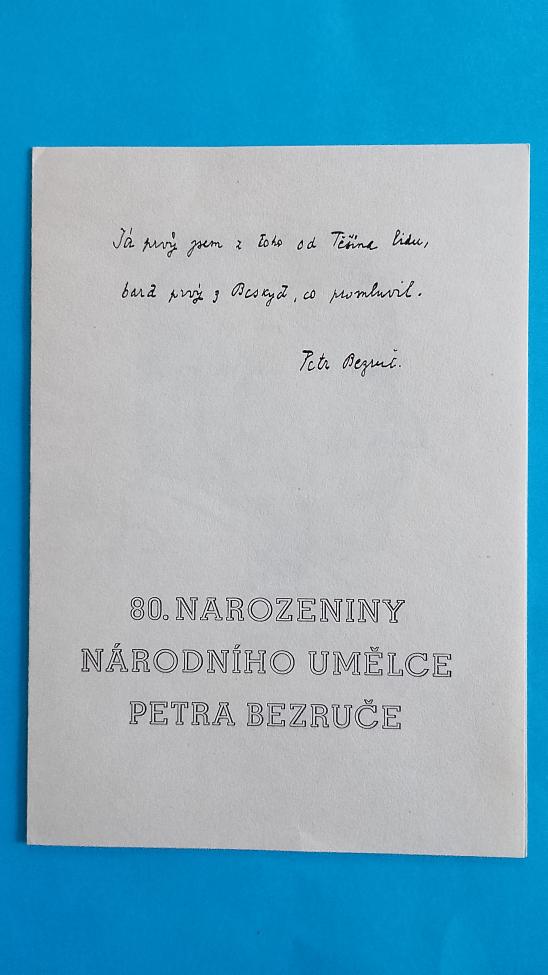 Já prvý jsem z toho od Těšína lidu,
bard prvý z Beskyd, co promluvil.
Petr Bezruč.
80. NAROZENINY
NÁRODNÍHO UMĚLCE
PETRA BEZRUČE